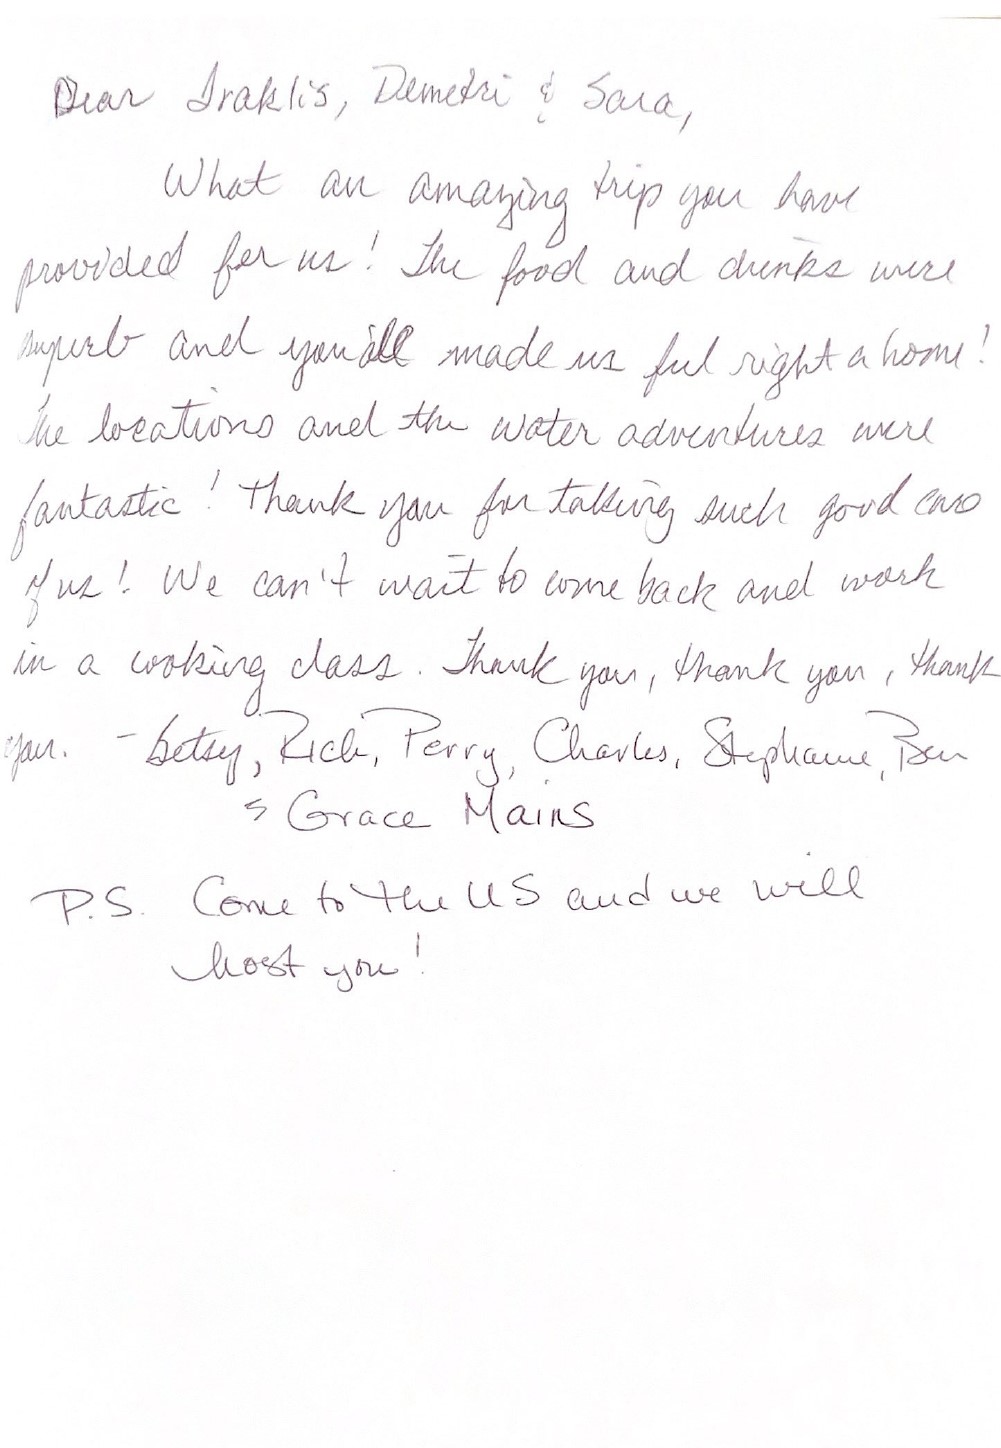 Dear Iraklis, Demetri & Sara,
What an amazing trip you have
provided for us! The food and drinks were
superb and you all made us feel right a home!
The locations and the water adventures were
fantastic! Thank you for taking such good care
of us! We can't wait to come back and work
in a cooking class. Thank you, thank you, thank
you. - Betsy, Rich, Perry, Charles, Stephanie, Ben
& Grace Mains
P.S. Come to the US and we will
host you!